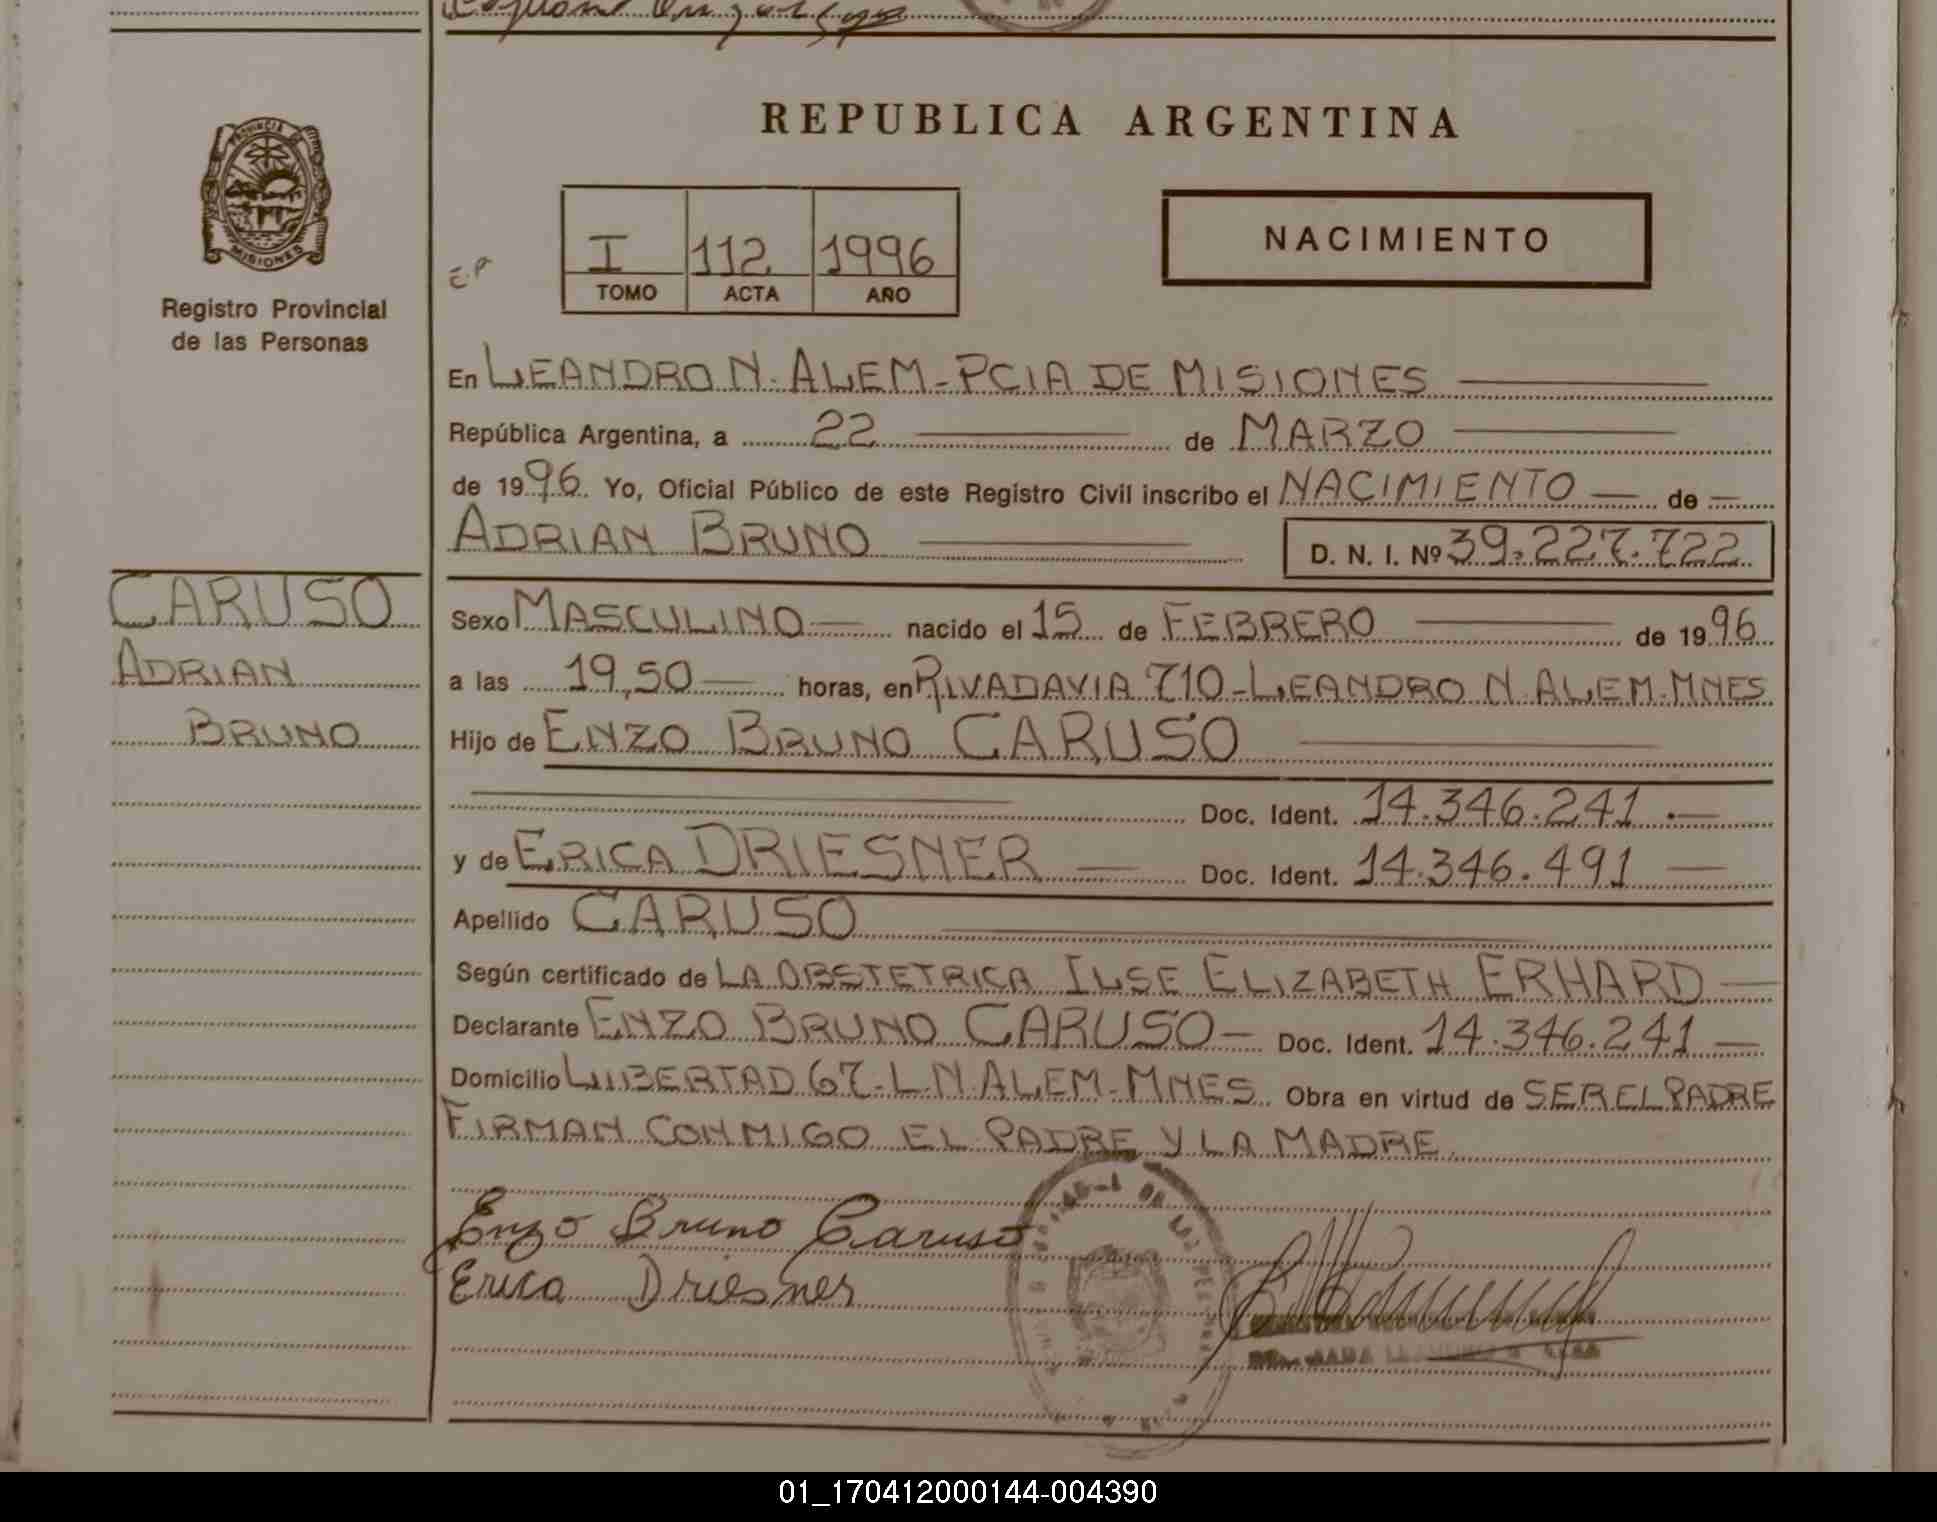 REPUBLICA ARGENTINA
PROVINCIA DE
MISIONES
Registro Provincial
de las Personas
E.P
I 112 1996
TOMO ACTA AÑO
NACIMIENTO
En LEANDRO N. ALEM - PCIA DE MISIONES
República Argentina, a 22 de MARZO
de 1996. Yo, Oficial Público de este Registro Civil inscribo el NACIMIENTO de
ADRIAN BRUNO D. N. I. Nº 39.227.722
CARUSO
ADRIAN
BRUNO
Sexo MASCULINO nacido el 15 de FEBRERO de 1996
a las 19,50 horas, en RIVADAVIA 710 - LEANDRO N. ALEM - MNES
Hijo de ENZO BRUNO CARUSO
Doc. Ident. 14.346.241.
y de ERICA DRIESNER Doc. Ident. 14.346.491
Apellido CARUSO
Según certificado de LA OBSTETRICA ILSE ELIZABETH ERHARD
Declarante ENZO BRUNO CARUSO Doc. Ident. 14.346.241
Domicilio LIBERTAD 67 - L.N. ALEM - MNES Obra en virtud de SER EL PADRE
FIRMAN CONMIGO EL PADRE Y LA MADRE.
Enzo Bruno Caruso
Erica Driesner
01_170412000144-004390